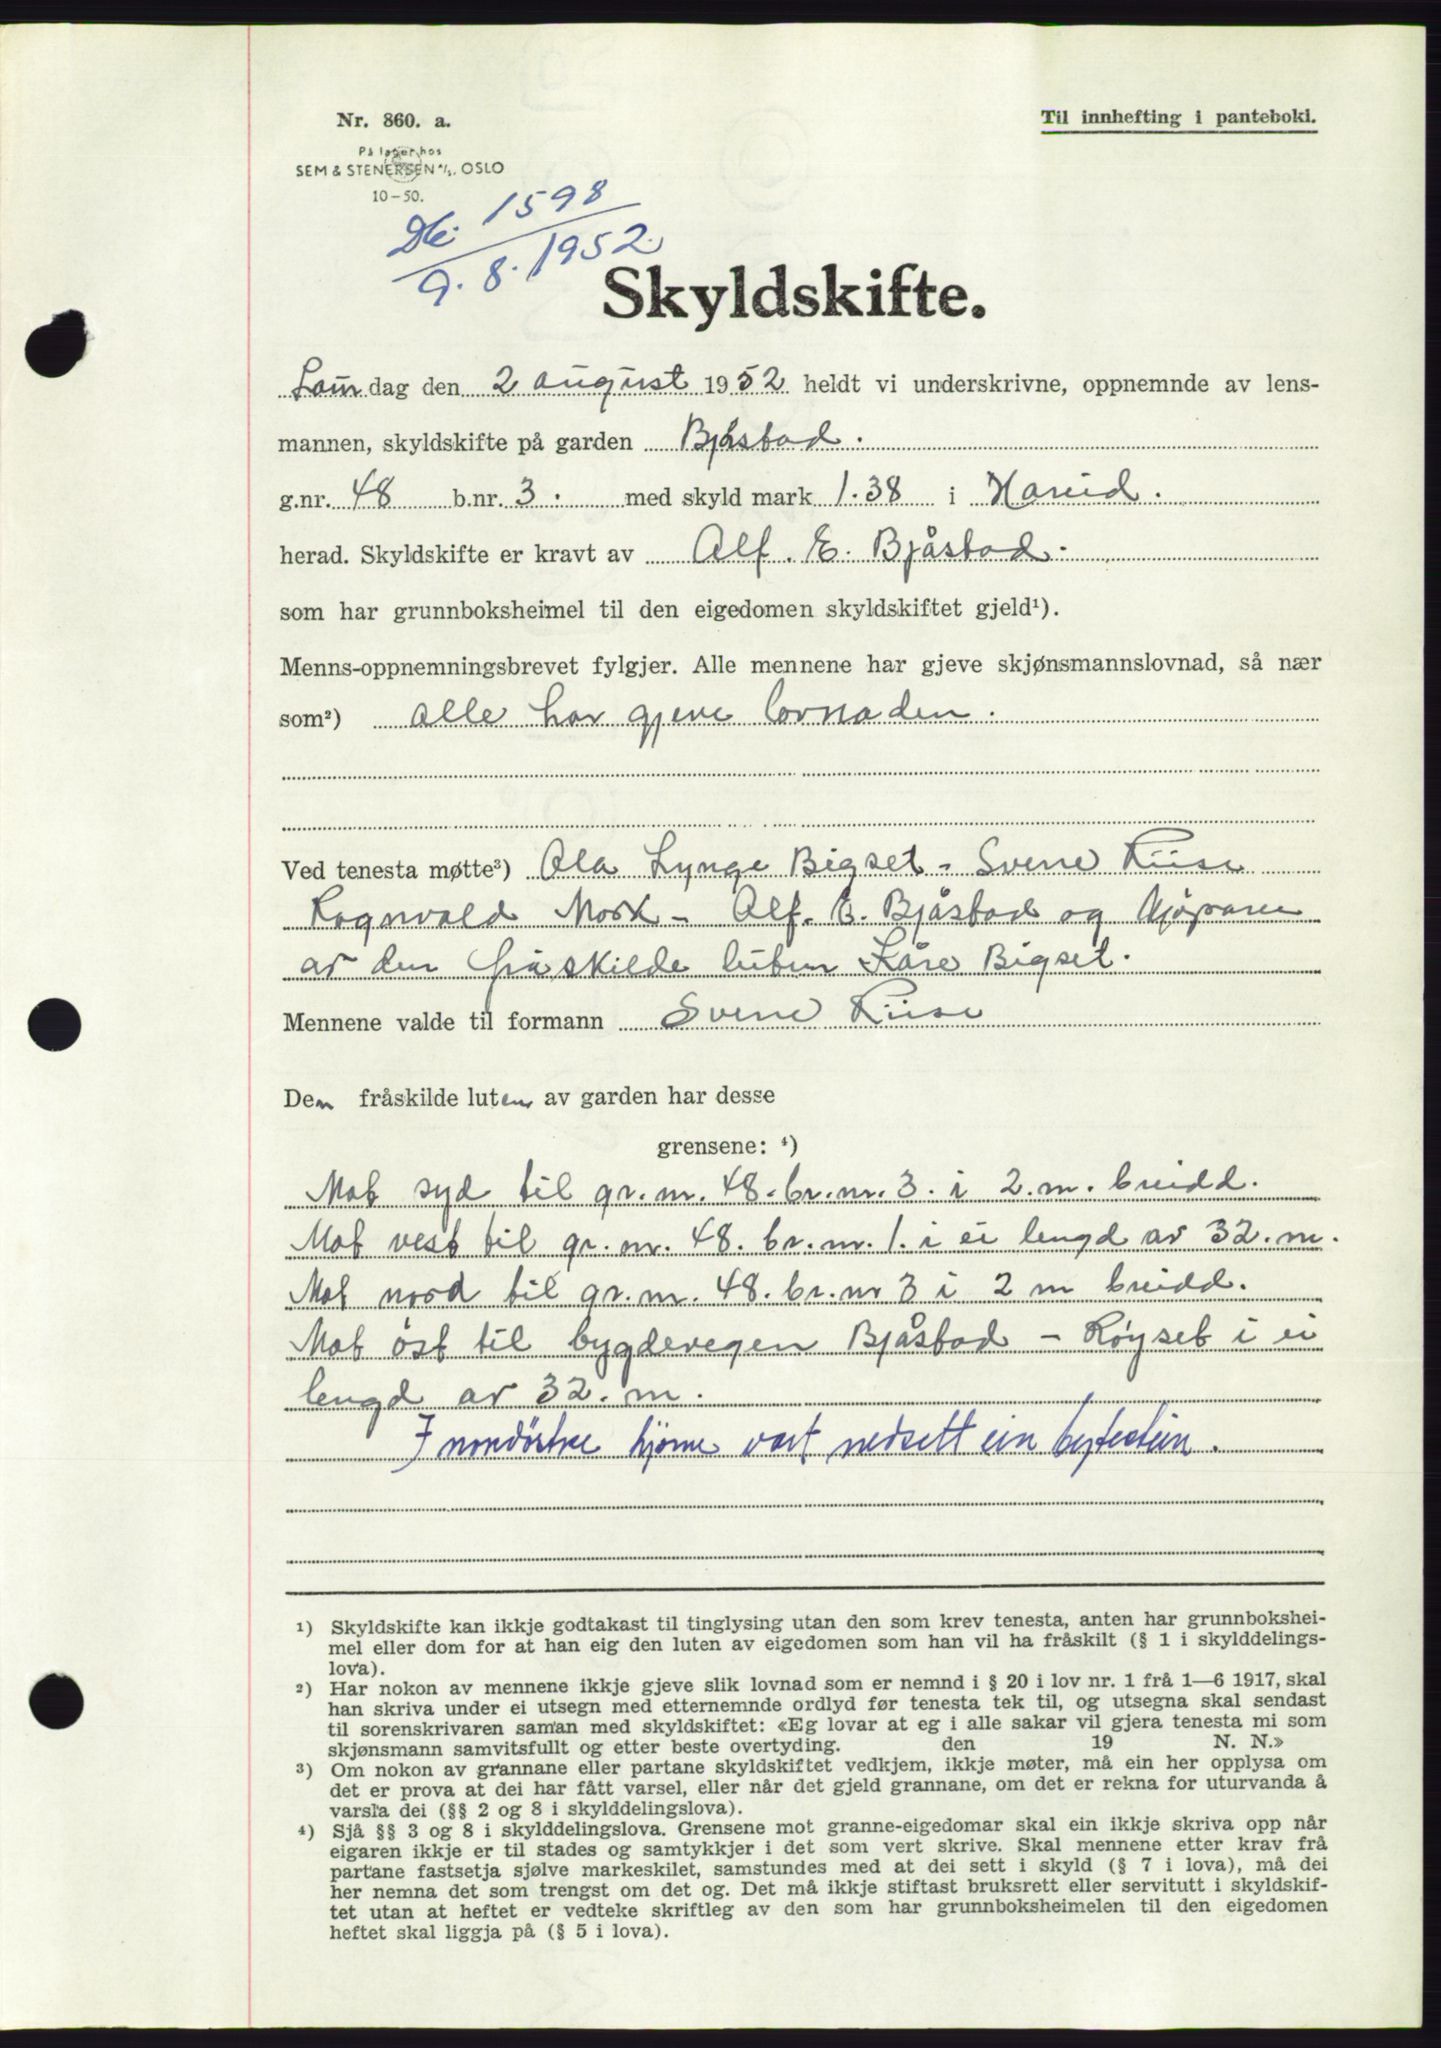 Nr. 860. a.
Til innhefting i panteboki.
På lager hos
SEM & STENERSEN A/S. OSLO
10-50.
Db: 1598
9.8.1952.
Skyldskifte.
Laurdag den 2 august 1952 heldt vi underskrivne, oppnemnde av lens-
mannen, skyldskifte på garden Bjåstad.
g.nr. 48 b.nr. 3. med skyld mark 1.38 i Hareid.
herad. Skyldskifte er kravt av Alf. E. Bjåstad.
som har grunnboksheimel til den eigedomen skyldskiftet gjeld¹).
Menns-oppnemningsbrevet fylgjer. Alle mennene har gjeve skjønsmannslovnad, så nær
som²) alle har gjeve lovnaden.
Ved tenesta møtte³) Ola Lynge Bigset - Sverre Riise
Ragnvald Mork - Alf. E. Bjåstad og kjøparen
av den fråskilde luten Kåre Bigset.
Mennene valde til formann Sverre Riise
Den fråskilde luten av garden har desse
grensene: ⁴)
Mot syd til gr.nr. 48. br.nr. 3. i 2.m. breidd.
Mot vest til gr.nr. 48. br.nr. 1. i ei lengd av 32.m.
Mot nord til gr.nr. 48. br.nr 3 i 2 m breidd.
Mot öst til bygdevegen Bjåstad - Röyset i ei
lengd av 32.m.
I nordöstre hjörne vart nedsett ein bytestein.
¹) Skyldskifte kan ikkje godtakast til tinglysing utan den som krev tenesta, anten har grunnbokshei-
mel eller dom for at han eig den luten av eigedomen som han vil ha fråskilt (§ 1 i skylddelings-
lova).
²) Har nokon av mennene ikkje gjeve slik lovnad som er nemnd i § 20 i lov nr. 1 frå 1—6 1917, skal
han skriva under ei utsegn med etternemnde ordlyd før tenesta tek til, og utsegna skal sendast
til sorenskrivaren saman med skyldskiftet: «Eg lovar at eg i alle sakar vil gjera tenesta mi som
skjønsmann samvitsfullt og etter beste overtyding. den 19 N. N.»
³) Om nokon av grannane eller partane skyldskiftet vedkjem, ikkje møter, må ein her opplysa om
det er prova at dei har fått varsel, eller når det gjeld grannane, om det er rekna for uturvanda å
varsla dei (§§ 2 og 8 i skylddelingslova).
⁴) Sjå §§ 3 og 8 i skylddelingslova. Grensene mot granne-eigedomar skal ein ikkje skriva opp når
eigaren ikkje er til stades og samtykkjer i det som vert skrive. Skal mennene etter krav frå
partane fastsetja sjølve markeskilet, samstundes med at dei sett i skyld (§ 7 i lova), må dei
her nemna det som trengst om det og. Det må ikkje stiftast bruksrett eller servitutt i skyldskif-
tet utan at heftet er vedteke skriftleg av den som har grunnboksheimelen til den eigedomen
heftet skal liggja på (§ 5 i lova).